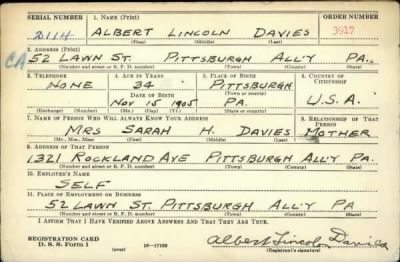 SERIAL NUMBER 1. NAME (Print) ORDER NUMBER
2114 ALBERT LINCOLN DAVIES 3917
(First) (Middle) (Last)
2. ADDRESS (Print)
CA 52 LAWN ST. PITTSBURGH ALL'Y PA.
(Number and street or R. F. D. number) (Town) (County) (State)
3. TELEPHONE 4. AGE IN YEARS 5. PLACE OF BIRTH 6. COUNTRY OF CITIZENSHIP
NONE 34 PITTSBURGH
DATE OF BIRTH (Town or county)
NOV 15 1905 PA. U.S.A.
(Exchange) (Number) (Mo.) (Day) (Yr.) (State or country)
7. NAME OF PERSON WHO WILL ALWAYS KNOW YOUR ADDRESS 8. RELATIONSHIP OF THAT PERSON
MRS SARAH H. DAVIES MOTHER
(Mr., Mrs., Miss) (First) (Middle) (Last)
9. ADDRESS OF THAT PERSON
1321 ROCKLAND AVE PITTSBURGH ALL'Y PA.
(Number and street or R. F. D. number) (Town) (County) (State)
10. EMPLOYER'S NAME
SELF
11. PLACE OF EMPLOYMENT OR BUSINESS
52 LAWN ST. PITTSBURGH ALL'Y PA
(Number and street or R. F. D. number) (Town) (County) (State)
I AFFIRM THAT I HAVE VERIFIED ABOVE ANSWERS AND THAT THEY ARE TRUE.
REGISTRATION CARD
D. S. S. Form 1 (over) 16-17105 Albert Lincoln Davies
(Registrant's signature)